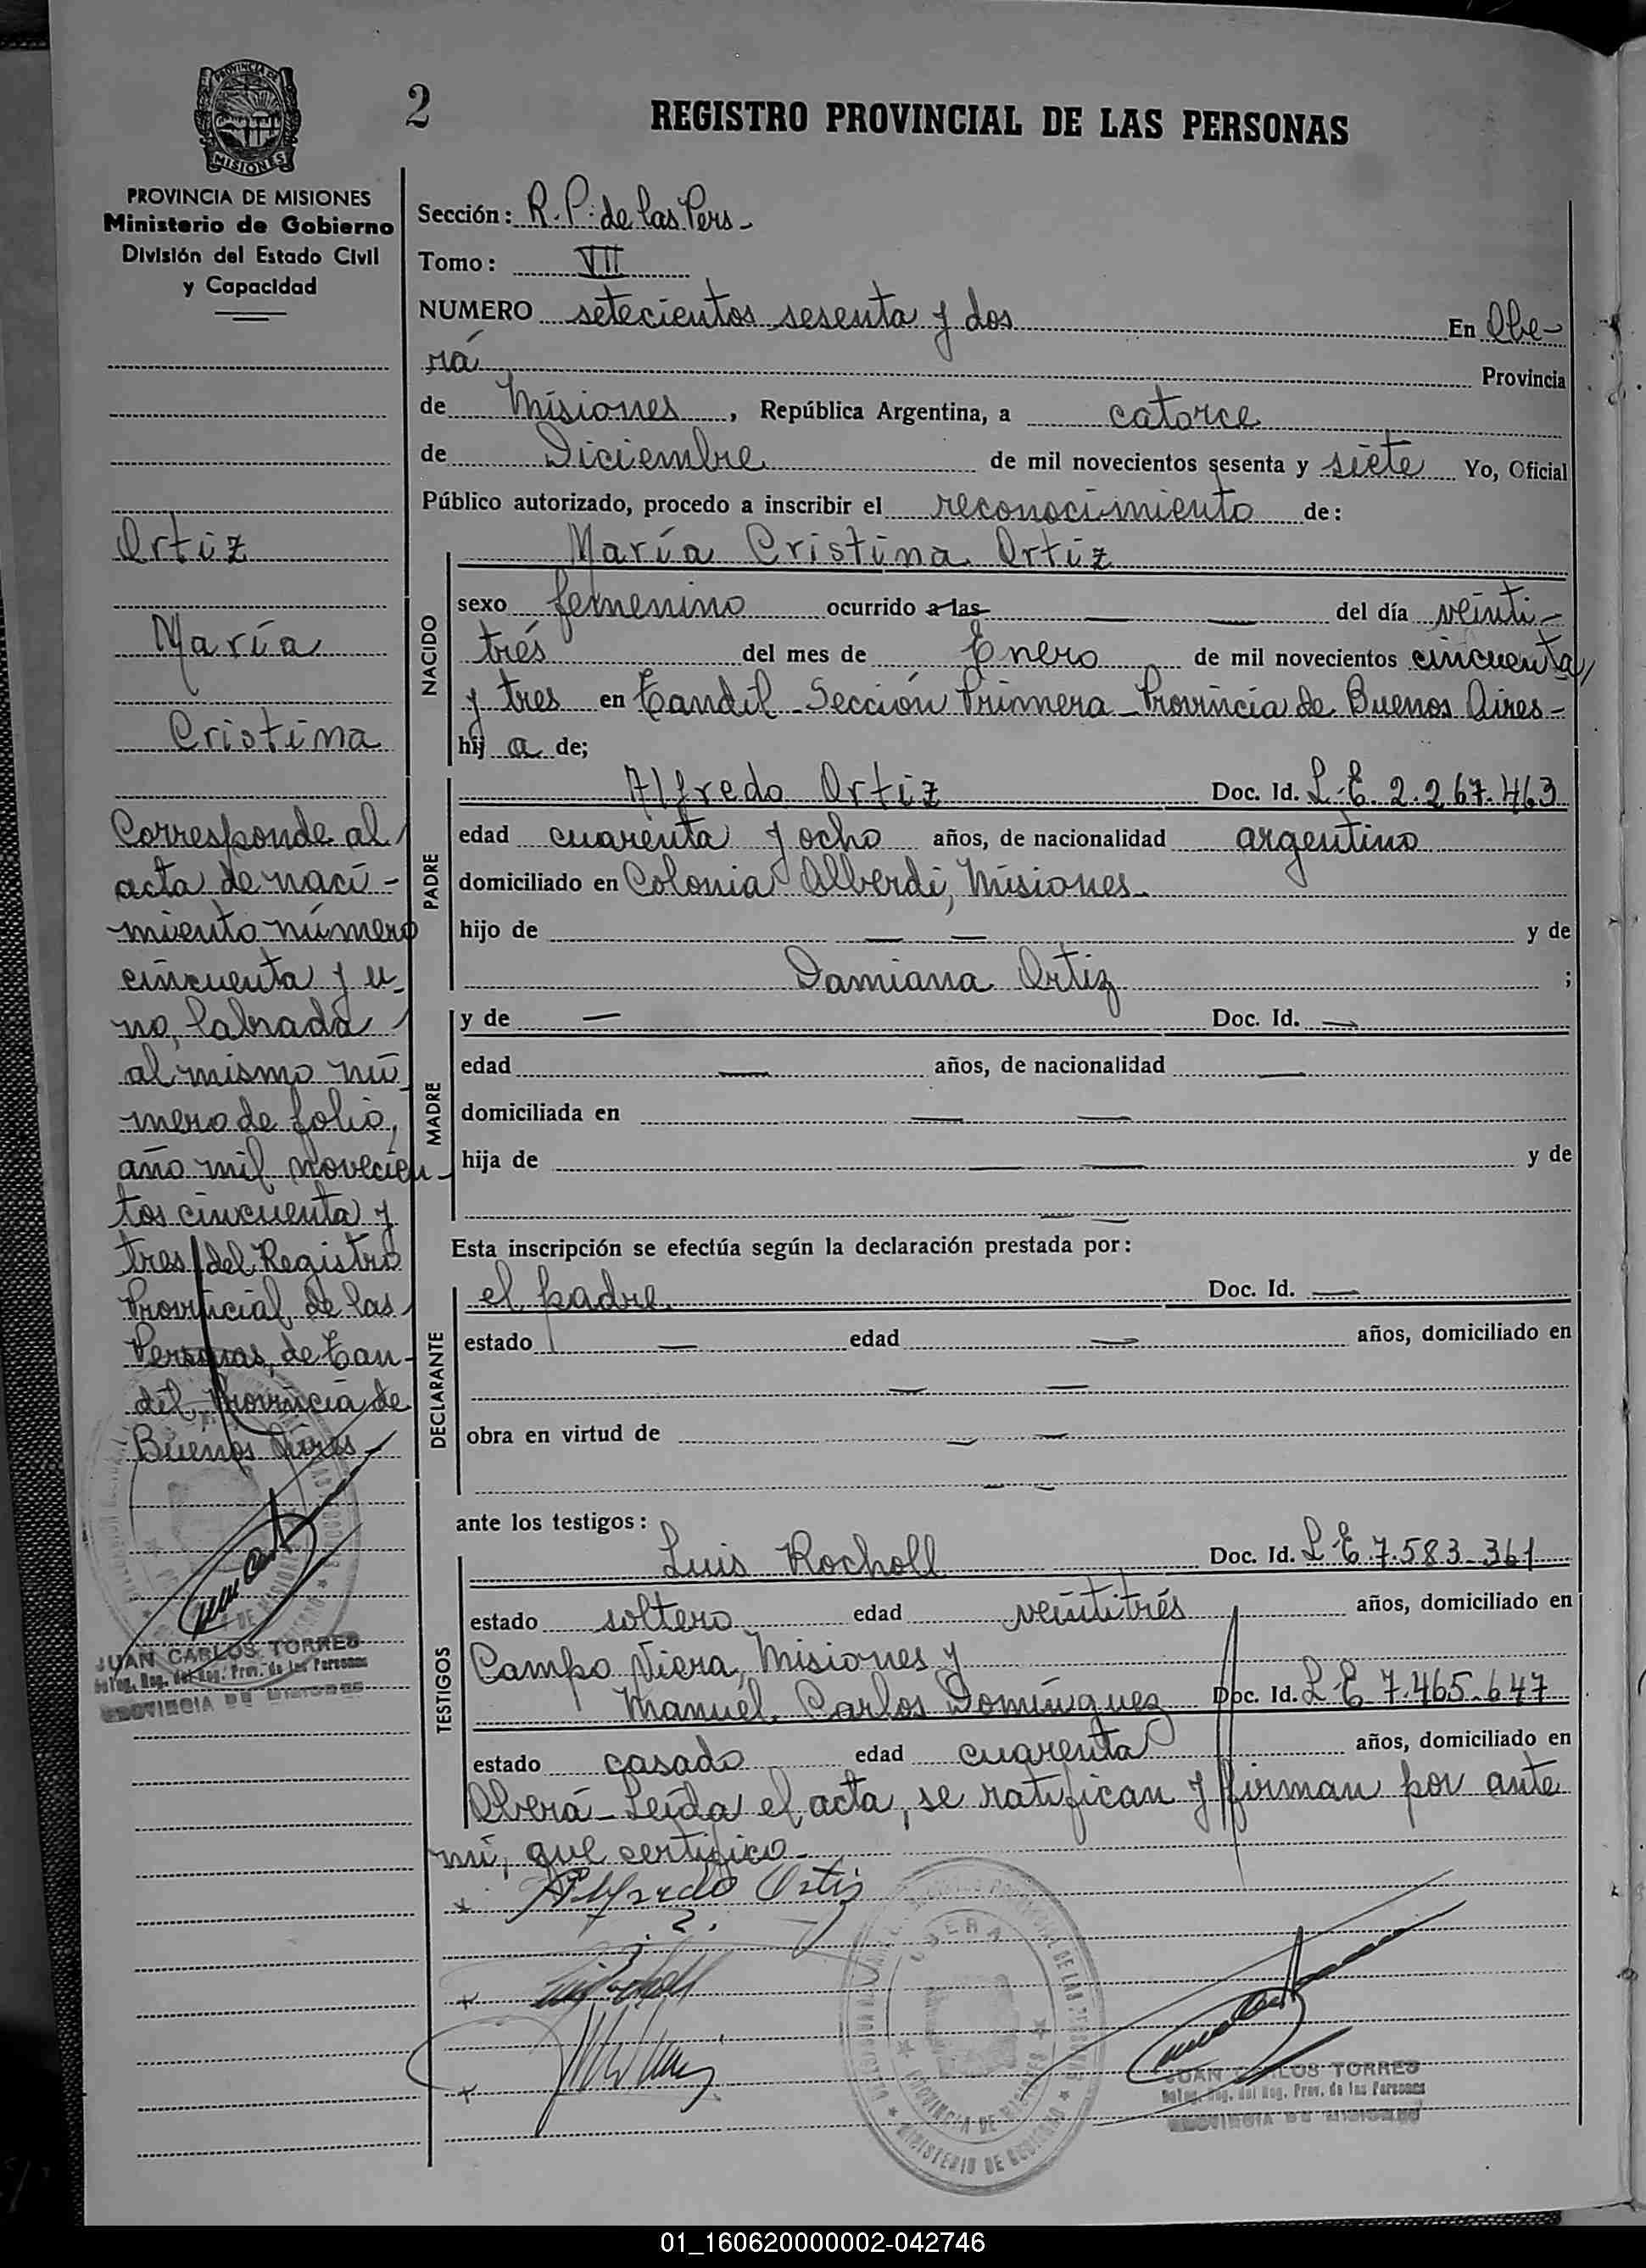 PROVINCIA DE
MISIONES
2
REGISTRO PROVINCIAL DE LAS PERSONAS
PROVINCIA DE MISIONES
Ministerio de Gobierno
División del Estado Civil
y Capacidad
Ortiz
María
Cristina
Corresponde al
acta de naci-
miento número
cincuenta y u-
no, labrada
al mismo nú
mero de folio,
año mil novecien-
tos cincuenta y
tres del Registro
Provincial de las
Personas, de Tan-
dil, Provincia de
Buenos Aires-
JUAN CARLOS TORRES
Deleg. Reg. del Reg. Prov. de las Personas
PROVINCIA DE MISIONES
Sección: R.P. de las Pers-
Tomo: VII
NUMERO setecientos sesenta y dos En Obe-
rá Provincia
de Misiones, República Argentina, a catorce
de Diciembre de mil novecientos sesenta y siete Yo, Oficial
Público autorizado, procedo a inscribir el reconocimiento de:
María Cristina Ortiz
NACIDO
sexo femenino ocurrido a las — — del día veinti-
trés del mes de Enero de mil novecientos cincuenta
y tres en Tandil-Sección Primera-Provincia de Buenos Aires-
hij a de;
PADRE
Alfredo Ortiz Doc. Id. L.E. 2.267.463
edad cuarenta y ocho años, de nacionalidad argentino
domiciliado en Colonia Alberdi, Misiones-
hijo de — — y de
Damiana Ortiz ;
MADRE
y de — Doc. Id. —
edad — años, de nacionalidad —
domiciliada en — —
hija de — — y de
— —
Esta inscripción se efectúa según la declaración prestada por:
DECLARANTE
el padre Doc. Id. —
estado — edad — años, domiciliado en
— —
obra en virtud de — —
— —
ante los testigos:
TESTIGOS
Luis Rocholl Doc. Id. L E 7.583-361
estado soltero edad veintitrés años, domiciliado en
Campo Viera, Misiones y
Manuel Carlos Domínguez Doc. Id. L E 7.465.647
estado casado edad cuarenta años, domiciliado en
Oberá-Leída el acta, se ratifican y firman por ante
mí, que certifico-
Alfredo Ortiz
OBERA
PROVINCIA DE MISIONES
MINISTERIO DE GOBIERNO
JUAN CARLOS TORRES
Deleg. Reg. del Reg. Prov. de las Personas
PROVINCIA DE MISIONES
01_160620000002-042746